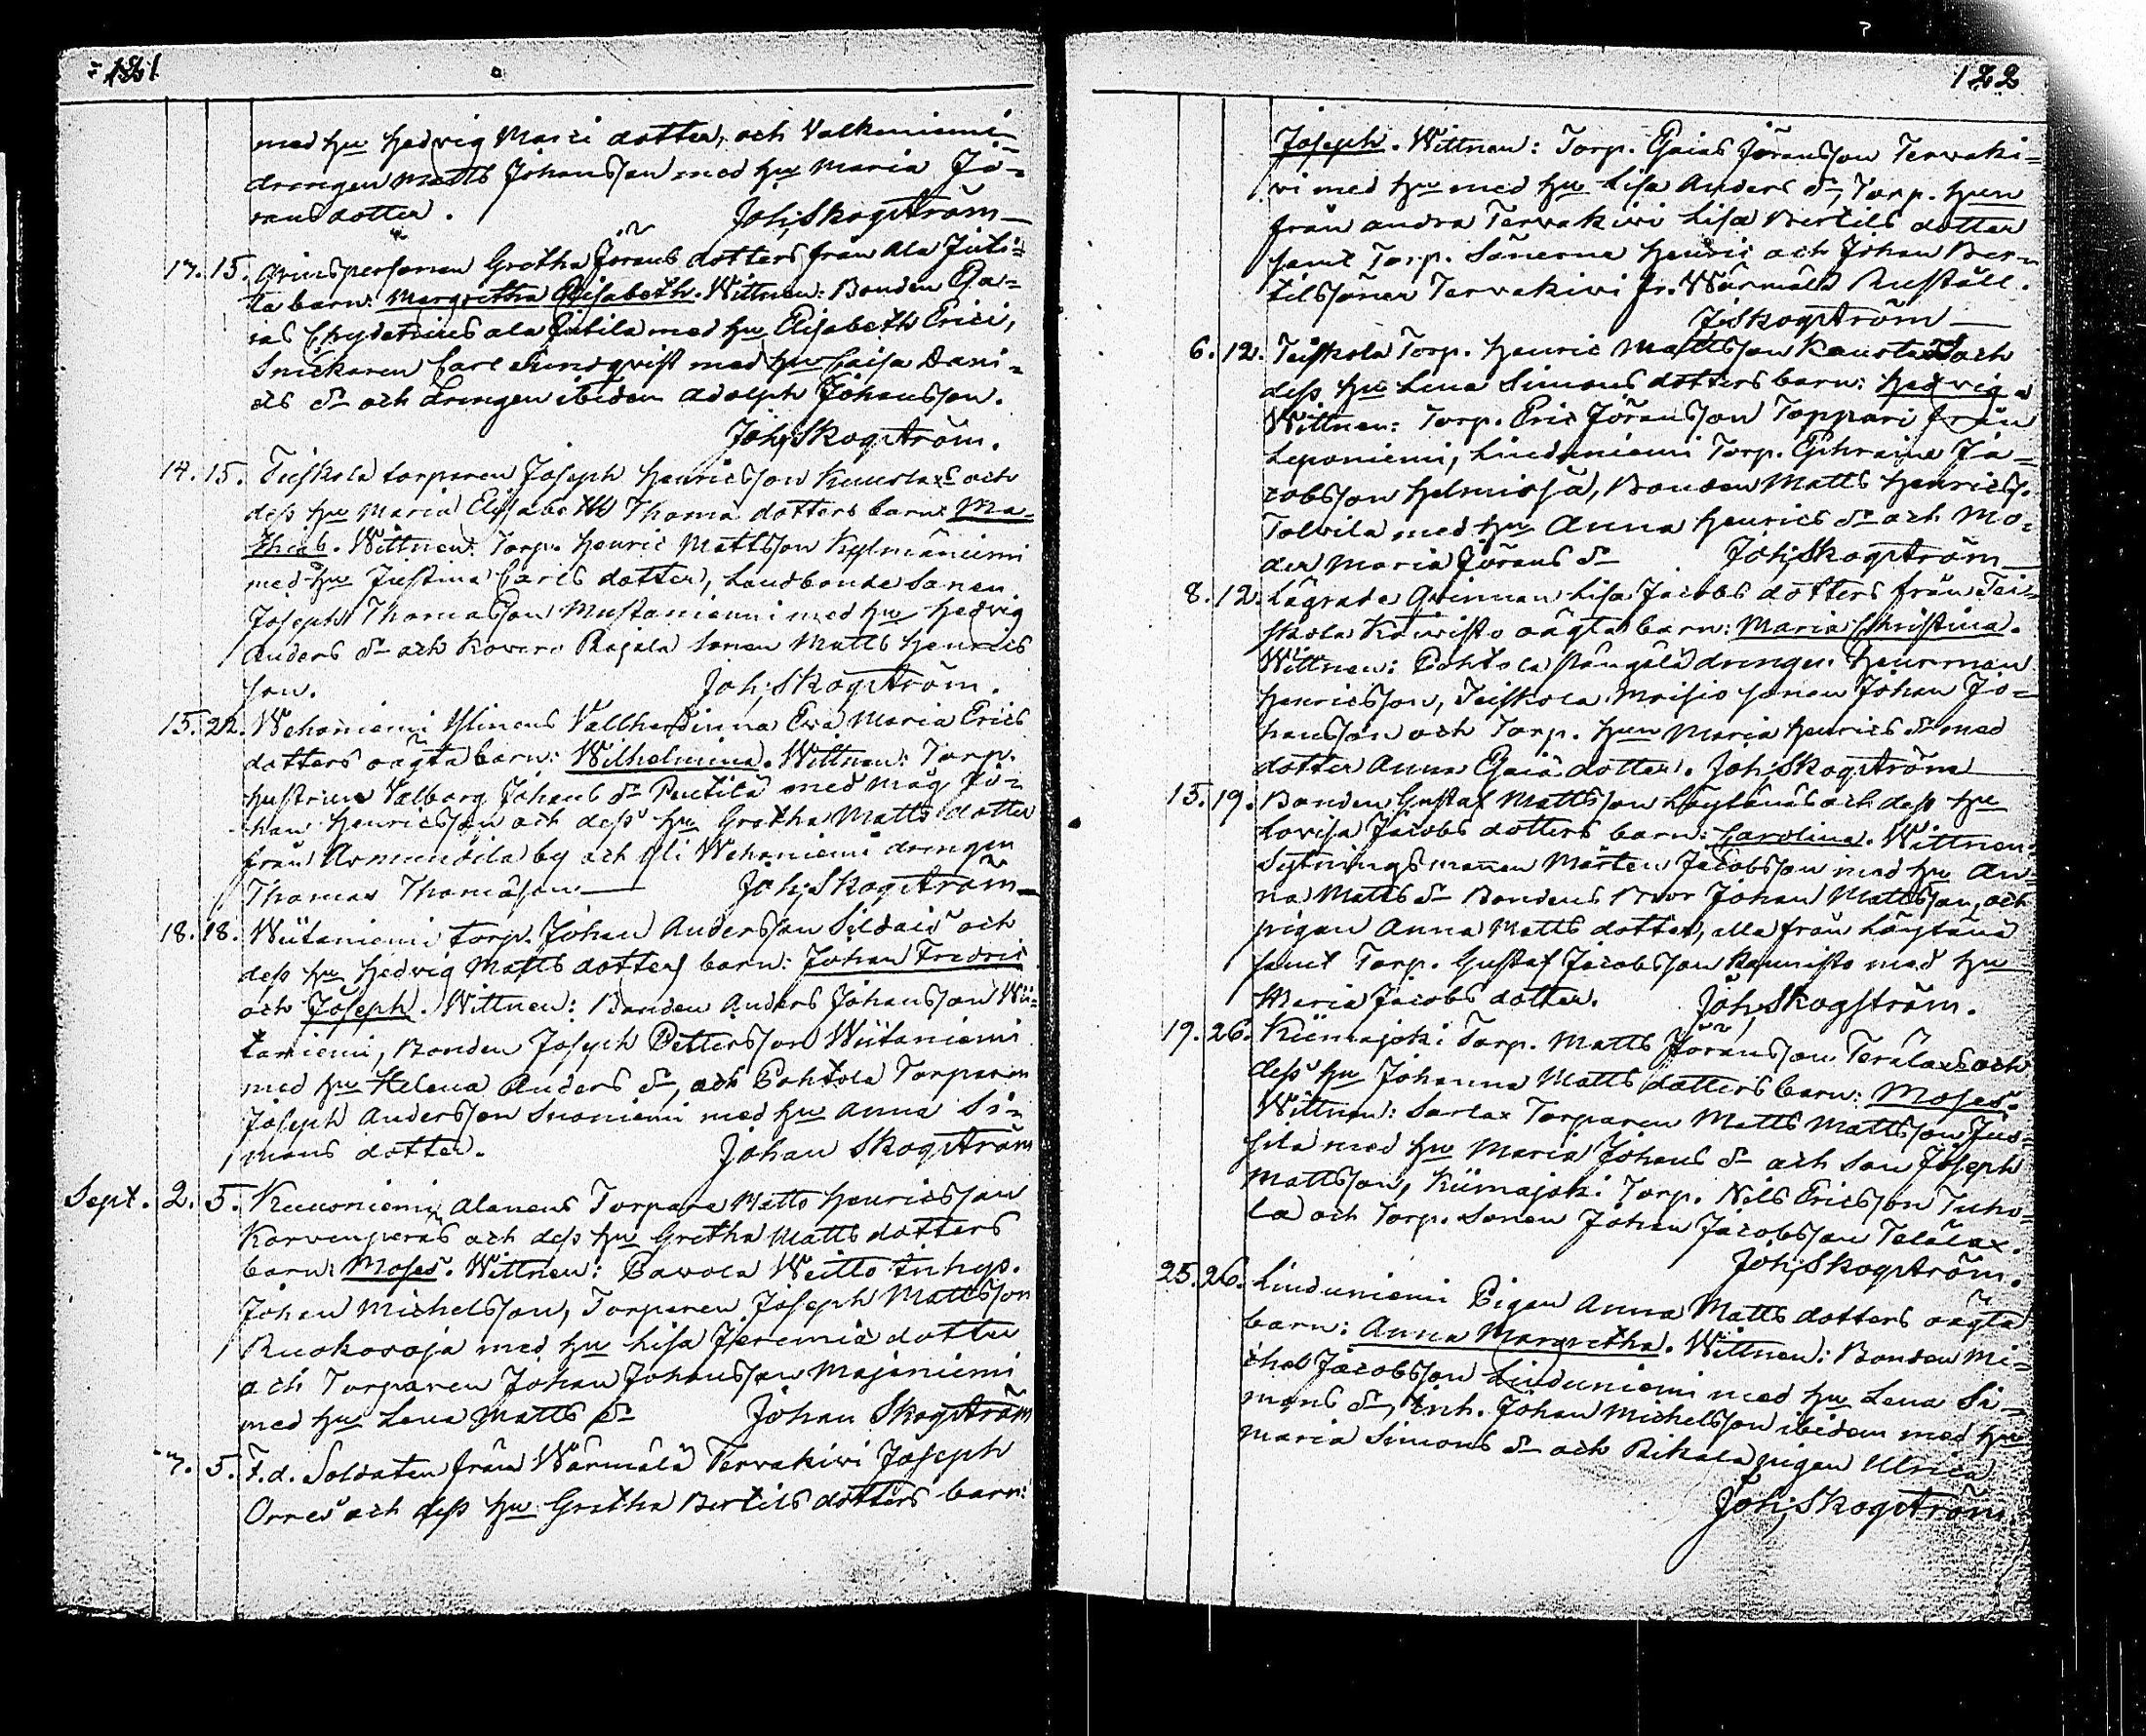 121
med hu Hedvig Marci dotter, och Valkeniemi
drengen Matts Johansson med hu Maria Jö=
ransdotter. Joh; Skogström
17. 15. Qvinspersonen Gretha Jörans dotters från Ala Juti=
la barn: Margretha Elisabeth. Wittnen: Bonden Esa=
ias Chydenius ala Jutila med hu Elisabeth Erici,
Snickaren Carl Sundqvist med hu Caisa Dani=
els dr och drengen ibidem Adolph Johansson.
Joh; Skogström.
14. 15. Teiskola torparen Joseph Henricsson Kuurlax och
dess hu Maria Elisabeth Thomæ dotters barn: Ma=
thias. Wittnen: Torp. Henric Mattsson Kylmäniemi
med hu Justina Carls dotter, Landbonde sonen
Joseph Thomasson Mustaniemi med hu Hedvig
Anders dr och Kovero Rajala sonen Matts Henrics
son. Joh; Skogström.
15. 22. Wehoniemi Ylinens Vallherdinna Eva Maria Erics
dotters oägta barn: Wilhelmina. Wittnen: Torp.
hustrun Valborg Johans dr Penttilä med måg Jo=
han Henricsson och dess hu Gretha Matts dotter
från Armundila by och Yli Wehoniemi drengen
Thomas Thomasson. Joh; Skogström
18. 18. Wiitaniemi torp. Johan Andersson Sildais och
dess hu Hedvig Matts dotters barn: Johan Fredric
och Joseph. Wittnen: Bonden Anders Johansson Wii=
taniemi, Bonden Joseph Pettersson Wiitaniemi
med hu Helena Anders dr, och Pohtola Torparen
Joseph Andersson Suoniemi med hu Anna Si=
mons dotter. Johan Skogström
Sept. 2. 5. Kuuoniemi Alanens Torpare Matts Henricsson
Korvenperäs och dess hu Gretha Matts dotters
barn: Moses. Wittnen: Pavola Weitto Inhys.
Johan Michelsson, Torparen Joseph Mattsson
Ruokooja med hu Lisa Jeremiæ dotter
och Torparen Johan Johansson Majaniemi
med hu Lena Matts dr Johan Skogström
7. 5. F.d. Soldaten från Wärmälä Tervakivi Joseph
Orres och dess hu Gretha Bertils dotters barn:
122
Joseph. Wittnen: Torp. Esaias Jöransson Tervaki=
vi med hu med hu Lisa Anders dr, Torp. hun
från andra Tervakivi Lisa Bertils dotter
samt Torp. Sönerna Henric och Johan Ber=
tilssöner Tervakivi fr. Wärmälä Rusthåll.
J; Skogström
6. 12. Teiskola Torp. Henric Mattsson och
dess hu Lena Simons dotters barn: Hedvig.
Wittnen: Torp. Eric Jöransson Toppari från
Leponiemi, Linduniemi Torp. Ephraim Ja=
cobsson Helmisjä, Bonden Matts Henricss.
Tolvila med hu Anna Henrics dr och Mo=
der Maria Jörans dr Joh; Skogström
8. 12. Lägrade Qvinnan Lisa Jacobs dotters från Tei=
skola Kauristo oägta barn: Maria Christina.
Wittnen: Pohtola drengen Herrman
Henricsson, Teiskola Moisio sonen Johan Jo=
hansson och Torp. hun Maria Henrics dr med
dotter Anna Esaiæ dotter. Joh; Skogström
15. 19. Bonden Gustaf Mattsson Löytänäs och dess hu
Lovisa Jacobs dotters barn: Carolina. Wittnen:
Sytningsmannen Mårten Jacobsson med hu An=
na Matts dr Bondens Bror Johan Mattsson, och
pigan Anna Matts dotter, alla från Löytänä
samt Torp. Gustaf Jacobsson Kaunisto med hu
Maria Jacobs dotter. Joh; Skogström.
19. 26. Kiimajoki Torp. Matts Jöransson Terälax och
dess hu Johanna Matts dotters barn: Moses.
Wittnen: Sarlax Torparen Matts Mattsson Jus=
sila med hu Maria Johans dr och son Joseph
Mattsson, Kiimajoki Torp. Nils Ericsson Tuho=
la och Torp. sonen Johan Jacobsson Telälax.
Joh; Skogström.
25. 26. Linduniemi Pigan Anna Matts dotters oägta
barn: Anna Margretha. Wittnen: Bonden Mi=
chel Jacobsson Linduniemi med hu Lena Si=
mons dr, Inh. Johan Michelsson ibidem med hu
Maria Simons dr och Rikala pigan Ulrica
Joh; Skogström